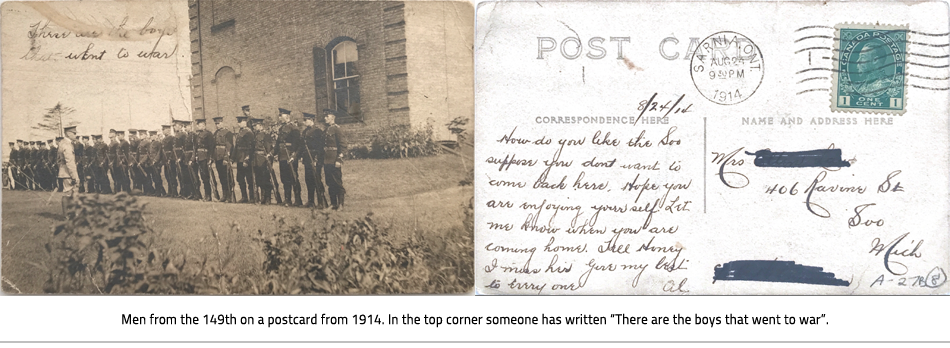 These are the boys
that went to war.
POST CARD
SARNIA, ONT
AUG 24
9 PM
1914
CANADA POSTAGE
1 ONE CENT 1
8/24/14
CORRESPONDENCE HERE
NAME AND ADDRESS HERE
How do you like the Soo
suppose you dont want to
come back here. Hope you
are enjoying yourself. Let
me know when you are
coming home. Tell Honey
I miss her Give my best
to every one Al
Mrs
406 Ravine St
Soo
Mich
A-278 8
Men from the 149th on a postcard from 1914. In the top corner someone has written “There are the boys that went to war”.